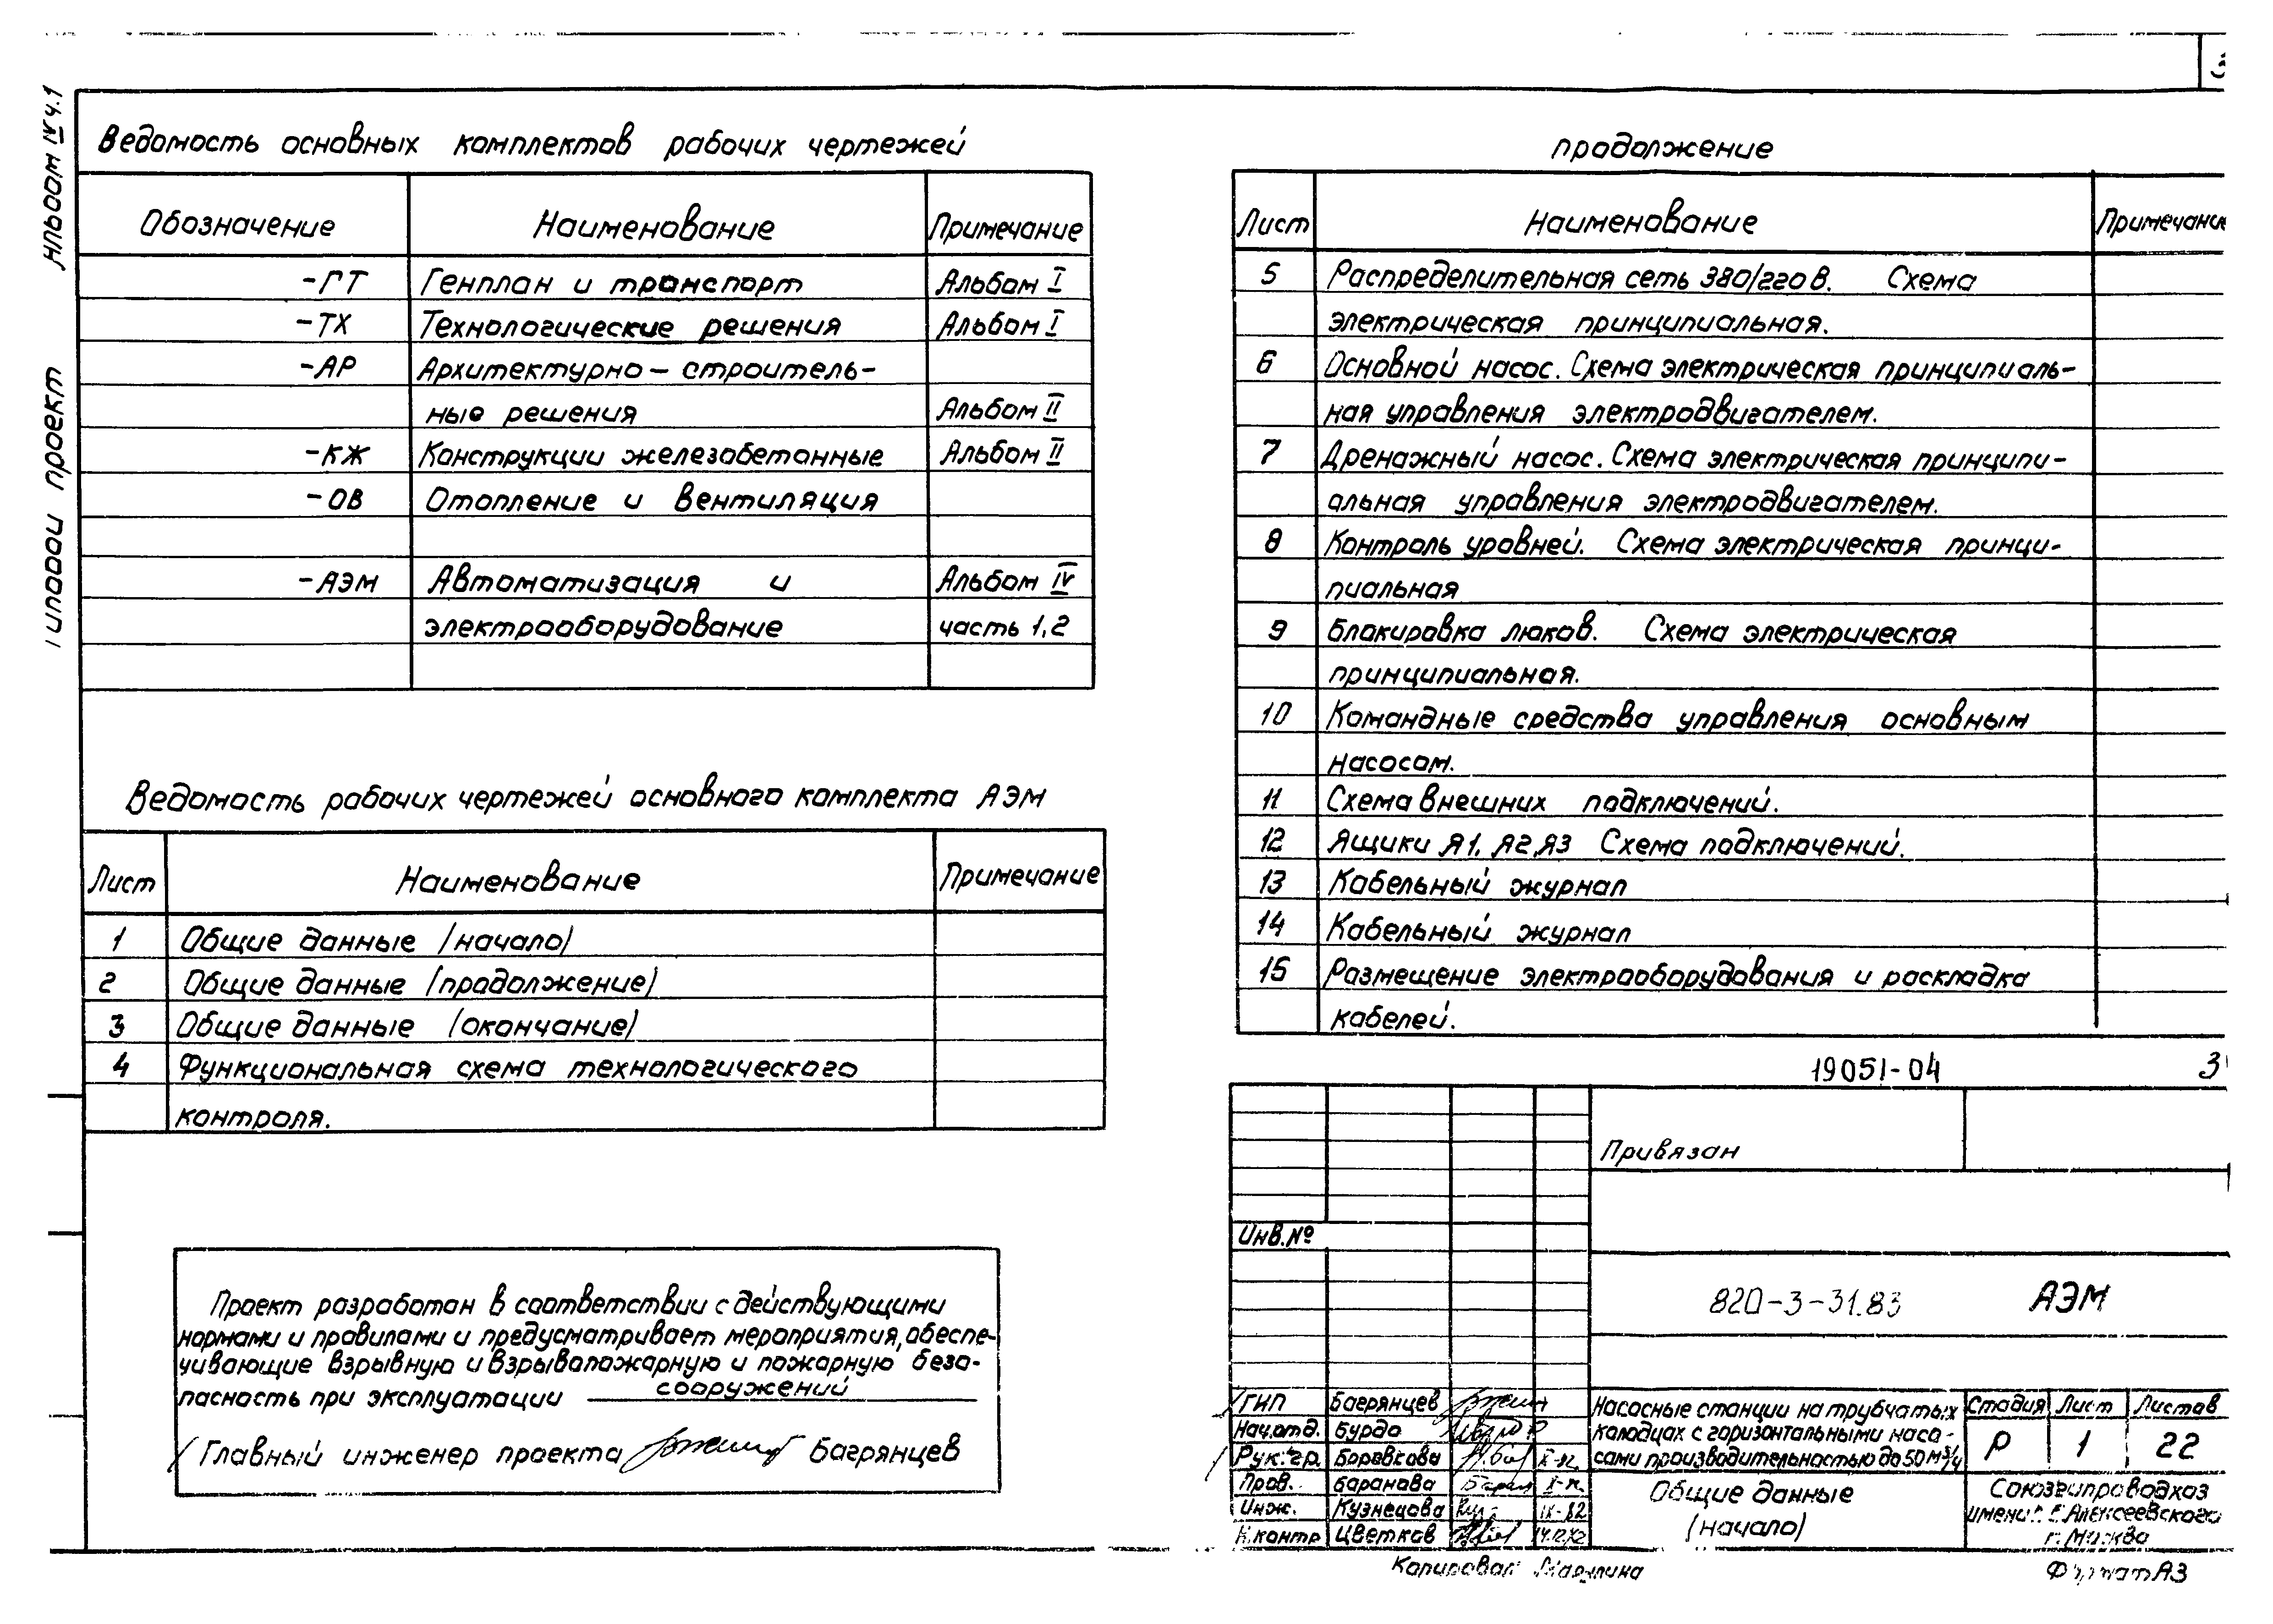 3
Альбом IV ч.1
Типовой проект
Ведомость основных комплектов рабочих чертежей
Обозначение Наименование Примечание
-ГТ Генплан и транспорт Альбом I
-ТХ Технологические решения Альбом I
-АР Архитектурно-строитель-
ные решения Альбом II
-КЖ Конструкции железобетонные Альбом II
-ОВ Отопление и вентиляция
-АЭМ Автоматизация и Альбом IV
электрооборудование часть 1,2
Ведомость рабочих чертежей основного комплекта АЭМ
Лист Наименование Примечание
1 Общие данные (начало)
2 Общие данные (продолжение)
3 Общие данные (окончание)
4 Функциональная схема технологического
контроля.
Проект разработан в соответствии с действующими
нормами и правилами и предусматривает мероприятия, обеспе-
чивающие взрывную и взрывопожарную и пожарную безо-
пасность при эксплуатации сооружений
Главный инженер проекта Багрянцев
продолжение
Лист Наименование Примечание
5 Распределительная сеть 380/220 В. Схема
электрическая принципиальная.
6 Основной насос. Схема электрическая принципиаль-
ная управления электродвигателем.
7 Дренажный насос. Схема электрическая принципи-
альная управления электродвигателем.
8 Контроль уровней. Схема электрическая принци-
пиальная
9 Блокировка люков. Схема электрическая
принципиальная.
10 Командные средства управления основным
насосом.
11 Схема внешних подключений.
12 Ящики Я1, Я2, Я3 Схема подключений.
13 Кабельный журнал
14 Кабельный журнал
15 Размещение электрооборудования и раскладка
кабелей.
19051-04 3
Привязан
Инв.№
820-3-31.83 АЭМ
ГИП Багрянцев
Нач.отд. Бурдо
Рук.гр. Боровкова X-82
Пров. Баранова X-82
Инж. Кузнецова IX-82
Н.контр Цветков 14.12.82
Насосные станции на трубчатых
колодцах с горизонтальными насо-
сами производительностью до 50 м³/ч
Стадия Лист Листов
Р 1 22
Общие данные
(начало)
Союзгипроводхоз
имени Е.Е.Алексеевского
г. Москва
Копировал Марулина
Формат А3